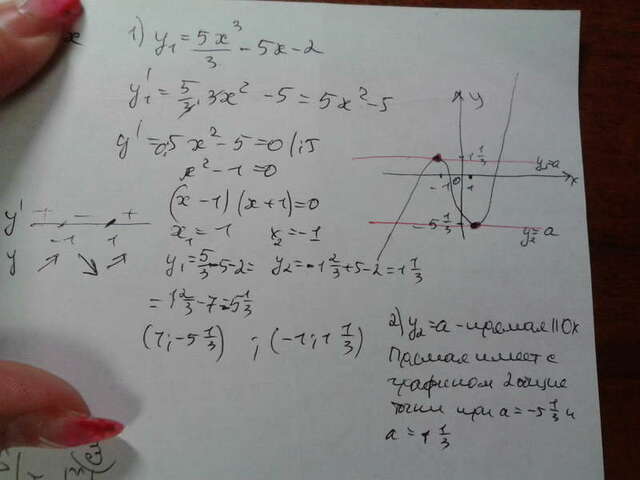 1) y₁ = 5x³/3 - 5x - 2
y₁' = 5/3 · 3x² - 5 = 5x² - 5
y' = 0; 5x² - 5 = 0 |:5
x² - 1 = 0
(x - 1)(x + 1) = 0
x₁ = 1 x₂ = -1
y' + - +
-1 1
y ↗ ↘ ↗
y₁ = 5/3 - 5 - 2 = y₂ = -1 2/3 + 5 - 2 = 1 1/3
= 1 2/3 - 7 = 5 1/3
(1; -5 1/3) ; (-1; 1 1/3)
y
1 1/3 y₂=a
-1 0 1 x
-5 1/3 y₂=a
2) y₂ = a - прямая || Ox
Прямая имеет с
графиком 2 общие
точки при a = -5 1/3 и
a = 1 1/3